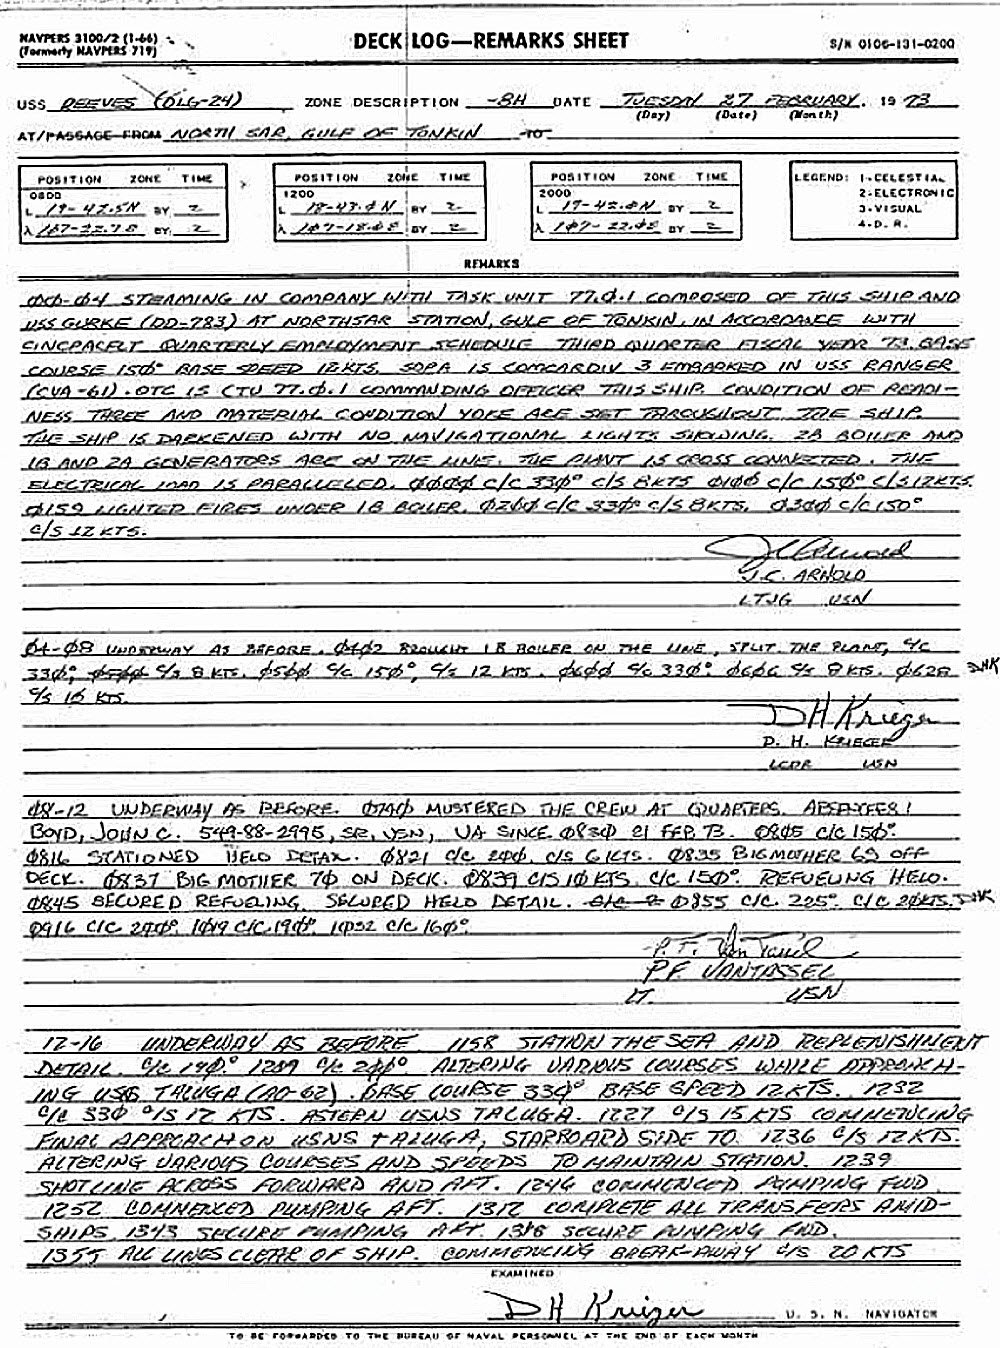 NAVPERS 3100/2 (1-66)
(Formerly NAVPERS 719)
DECK LOG—REMARKS SHEET
S/N 0106-131-0200
USS REEVES (DLG-24) ZONE DESCRIPTION -8H DATE TUESDAY 27 FEBRUARY, 1973
(Day) (Date) (Month)
AT/PASSAGE FROM NORTH SAR, GULF OF TONKIN TO
POSITION ZONE TIME
0800
L 19-47.5N BY 2
λ BY 2
POSITION ZONE TIME
1200
L BY 2
λ BY 2
POSITION ZONE TIME
2000
L BY 2
λ BY 2
LEGEND: 1-CELESTIAL
2-ELECTRONIC
3-VISUAL
4-D. R.
REMARKS
ØØ-Ø4 STEAMING IN COMPANY WITH TASK UNIT 77.Ø.1 COMPOSED OF THIS SHIP AND
USS GURKE (DD-783) AT NORTHSAR STATION, GULF OF TONKIN, IN ACCORDANCE WITH
CINCPACFLT QUARTERLY EMPLOYMENT SCHEDULE THIRD QUARTER FISCAL YEAR 73. BASE
COURSE 15Ø° BASE SPEED 12KTS. SOPA IS COMCARDIV 3 EMBARKED IN USS RANGER
(CVA-61). OTC IS CTU 77.Ø.1 COMMANDING OFFICER THIS SHIP. CONDITION OF READI-
NESS THREE AND MATERIAL CONDITION YOKE ARE SET THROUGHOUT THE SHIP.
THE SHIP IS DARKENED WITH NO NAVIGATIONAL LIGHTS SHOWING. 2B BOILER AND
1B AND 2A GENERATORS ARE ON THE LINE. THE PLANT IS CROSS CONNECTED. THE
ELECTRICAL LOAD IS PARALLELED. ØØØØ C/C 33Ø° C/S 8KTS Ø1ØØ C/C 15Ø° C/S 12KTS.
Ø159 LIGHTED FIRES UNDER 1B BOILER. Ø2ØØ C/C 33Ø° C/S 8KTS. Ø3ØØ C/C 15Ø°
C/S 12 KTS.
J.C. Arnold
J.C. ARNOLD
LTJG USN
Ø4-Ø8 UNDERWAY AS BEFORE. Ø4Ø2 BROUGHT 1B BOILER ON THE LINE, SPLIT THE PLANT, C/C
33Ø°, C/S 8 KTS. Ø5ØØ C/C 15Ø°, C/S 12 KTS. Ø6ØØ C/C 33Ø°. Ø6Ø6 C/S 8 KTS. Ø628 DHK
C/S 16 KTS.
DH Krieger
D. H. KRIEGER
LCDR USN
Ø8-12 UNDERWAY AS BEFORE. Ø74Ø MUSTERED THE CREW AT QUARTERS. ABSENTEES:
BOYD, JOHN C. 549-88-2995, SR, USN, UA SINCE Ø83Ø 21 FEB 73. Ø805 C/C 15Ø°.
Ø816 STATIONED HELO DETAIL. Ø821 C/C 2ØØ, C/S 6 KTS. Ø835 BIG MOTHER 69 OFF
DECK. Ø837 BIG MOTHER 7Ø ON DECK. Ø839 C/S 1Ø KTS. C/C 15Ø°. REFUELING HELO.
Ø845 SECURED REFUELING. SECURED HELO DETAIL. Ø855 C/C 225° C/C 2ØKTS. DHK
Ø916 C/C 2ØØ°. 1Ø19 C/C 19Ø°. 1Ø32 C/C 16Ø°.
P.F. Van Tassel
P.F. VANTASSEL
LT. USN
12-16 UNDERWAY AS BEFORE 1158 STATION THE SEA AND REPLENISHMENT
DETAIL. C/C 19Ø° 12Ø9 C/C 2ØØ°. ALTERING VARIOUS COURSES WHILE APPROACH-
ING USNS TALUGA (AO-62). BASE COURSE 33Ø° BASE SPEED 12KTS. 1232
C/C 33Ø C/S 12 KTS. ASTERN USNS TALUGA. 1227 C/S 15 KTS COMMENCING
FINAL APPROACH ON USNS TALUGA, STARBOARD SIDE TO. 1236 C/S 12KTS.
ALTERING VARIOUS COURSES AND SPEEDS TO MAINTAIN STATION. 1239
SHOTLINE ACROSS FORWARD AND AFT. 1246 COMMENCED PUMPING FWD.
1252 COMMENCED PUMPING AFT. 1312 COMPLETE ALL TRANSFERS AMID-
SHIPS. 1343 SECURE PUMPING AFT. 1348 SECURE PUMPING FWD.
1355 ALL LINES CLEAR OF SHIP. COMMENCING BREAK-AWAY C/S 20 KTS
EXAMINED
DH Krieger U. S. N. NAVIGATOR
TO BE FORWARDED TO THE BUREAU OF NAVAL PERSONNEL AT THE END OF EACH MONTH